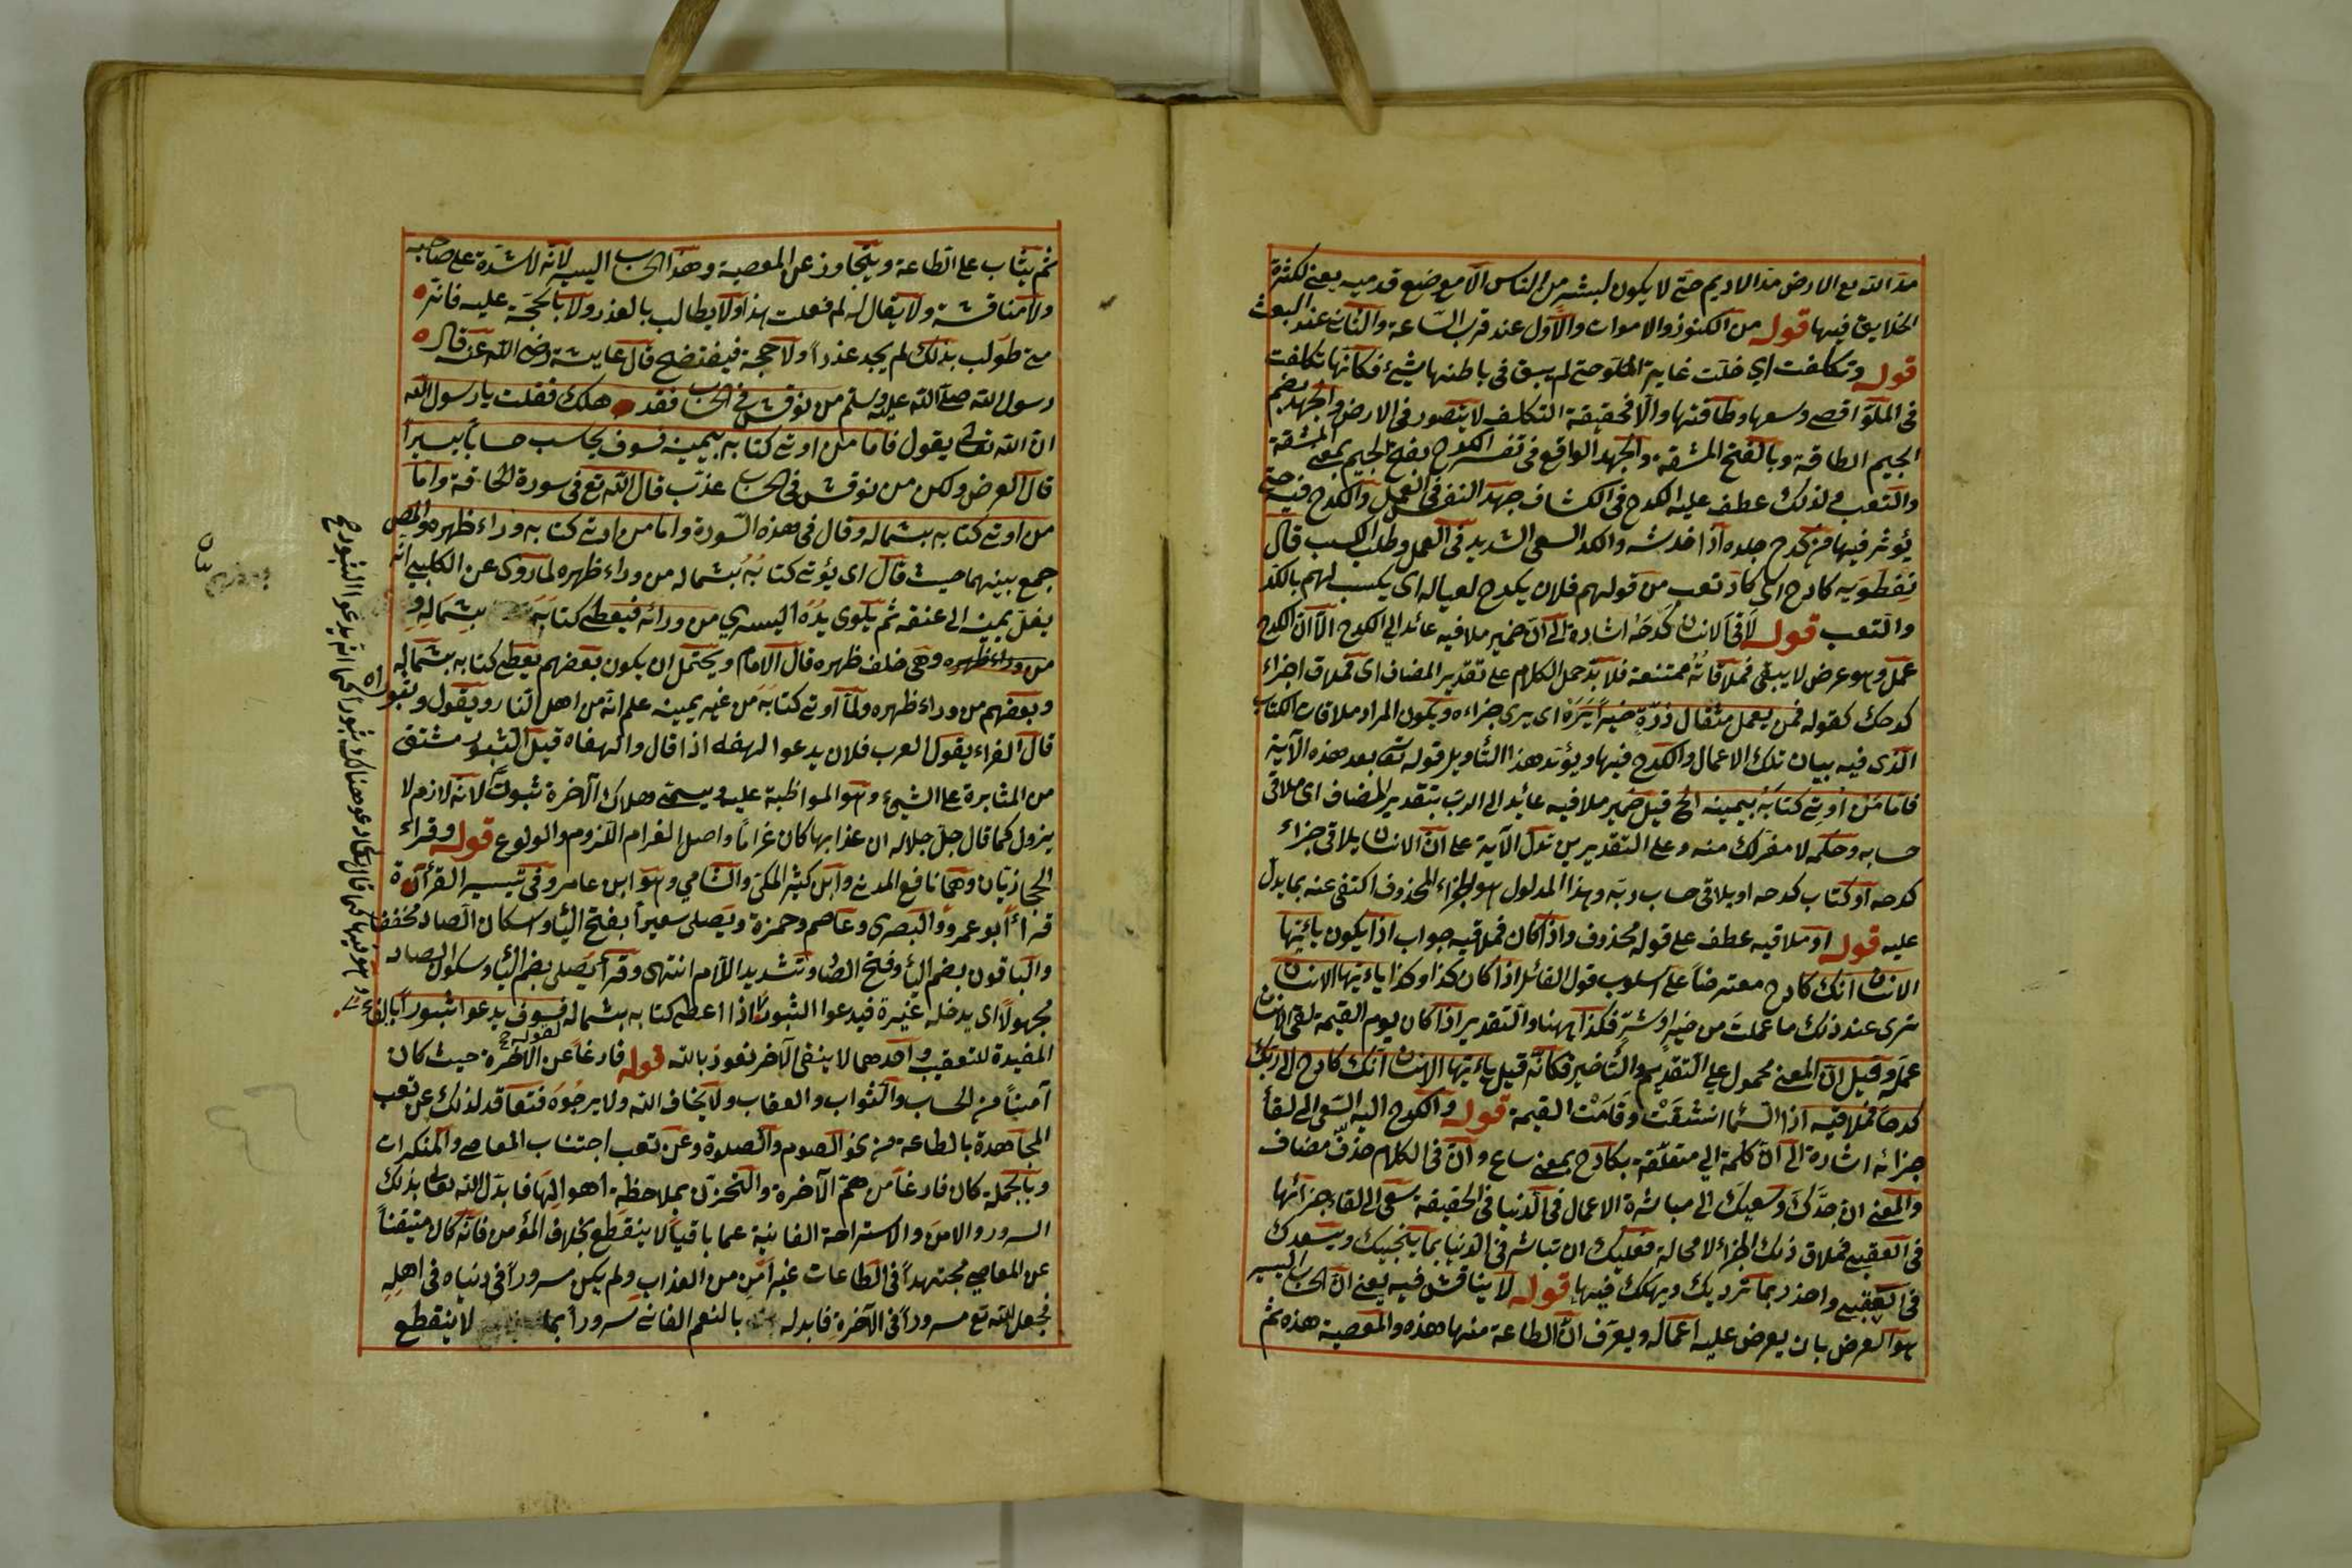 مد الله تع الارض مد الاديم حتى لا يكون لبشر من الناس الا موضع قدميه يعني لكثرة
الخلايق فيها قوله من الكنوز والاموات والاول عند قرب الساعة والثاني عند البعث
قوله وتكلفت اي خلت غاية الخلو حتى لم يبق في باطنها شيء فكانها تكلفت
في الخلو اقصى وسعها وطاقتها والا فحقيقة التكلف لا يتصور في الارض والجهد بضم
الجيم الطاقة وبالفتح المشقة والجهد الواقع في تفسير الكدح بفتح الجيم بمعنى المشقة
والتعب ولذلك عطف عليه الكدح في الكشاف جهد النفس في العمل والكدح فيه حتى
يؤثر فيها من كدح جلده اذا خدشه والكد السعي الشديد في العمل وطلب الكسب قال
نفطويه كادح اي كاد تعب من قولهم فلان يكدح لعياله اي يكسب لهم بالكد
والتعب قوله لاقى الانسان كدحه اشارة الى ان ضمير ملاقيه عائد الى الكدح الا ان الكدح
عمل وهو عرض لا يبقى فملاقاته ممتنعة فلا بد حمل الكلام على تقدير المضاف اى فملاق اجزاء
كدحك كقوله فمن يعمل مثقال ذرة خيرا يره اى يرى جزاءه ويكون المراد ملاقات الكتاب
الذى فيه بيان تلك الاعمال والكدح فيها ويؤيد هذا التأويل قوله تع بعد هذه الآية
فاما من اوتى كتابه بيمينه الخ قيل ضمير ملاقيه عائد الى الرب بتقدير المضاف اى ملاقى
حسابه وحكمه لا مفر لك منه وعلى التقديرين تدل الآية على ان الانسان يلاقى جزاء
كدحه او كتاب كدحه او يلاقى حساب ربه وهذا المدلول هو الجزاء المحذوف اكتفى عنه بما يدل
عليه قوله او ملاقيه عطف على قوله محذوف واذا كان فملاقيه جواب اذا يكون يا ايها
الانسان انك كادح معترضا على اسلوب قول القائل اذا كان كذا وكذا يا ايها الانسان
ترى عند ذلك ما عملت من خير او شر فكذا ههنا والتقدير اذا كان يوم القيمة لقى الانسان
عمله وقيل ان المعنى محمول على التقديم والتأخير فكانه قيل يا ايها الانسان انك كادح الى ربك
كدحا فملاقيه اذا السماء انشقت وقامت القيمة قوله والكدح اليه السعى الى لقاء
جزائه اشارة الى ان كلمة الى متعلقة بكادح بمعنى ساع وان في الكلام حذف مضاف
والمعنى ان جدك وسعيك الى مباشرة الاعمال في الدنيا في الحقيقة سعى الى لقاء جزائها
في العقبى فملاق ذلك الجزاء لا محالة فعليك ان تباشر في الدنيا بما ينجيك ويسعدك
في العقبى واحذر بما ترديك ويهلك فيها قوله لا يناقش فيه يعنى ان الحساب اليسير
هو العرض بان يعرض عليه اعماله ويعرف ان الطاعة منها هذه والمعصية هذه ثم
ثم يثاب على الطاعة ويتجاوز عن المعصية وهذا الحساب اليسير لانه لا شدة على صاحبه
ولا مناقشة ولا يقال له لم فعلت هذا ولا يطالب بالعذر ولا بالحجة عليه فانه
متى طولب بذلك لم يجد عذرا ولا حجة فيفتضح قال عايشة رضى الله عنه قال
رسول الله صلى الله عليه وسلم من نوقش في الحساب فقد هلك فقلت يا رسول الله
ان الله تعالى يقول فاما من اوتى كتابه بيمينه فسوف يحاسب حسابا يسيرا
قال العرض ولكن من نوقش في الحساب عذب قال الله تع في سورة الحاقة واما
من اوتى كتابه بشماله وقال في هذه السورة واما من اوتى كتابه وراء ظهره والمص
جمع بينهما حيث قال اى يؤتى كتابه بشماله من وراء ظهره لما روى عن الكلبي انه
يغل يمينه الى عنقه ثم يلوى يده اليسرى من ورائه فيعطى كتابه بشماله و
من وراء ظهره وهى خلف ظهره قال الامام ويحتمل ان يكون بعضهم يعطى كتابه بشماله
وبعضهم من وراء ظهره ولما اوتى كتابه من غير يمينه علم انه من اهل النار ويقول وثبوراه
قال الفراء يقول العرب فلان يدعو الهفه اذا قال والهفاه قيل الثبور مشتق
من المثابرة على الشيء وهو المواظبة عليه ويسمى هلاك الآخرة ثبورا لانه لازم لا
يزول كما قال جل جلاله ان عذابها كان غراما واصل الغرام اللزوم والولوع قوله وقراء
الحجازيان وهما نافع المدني وابن كثير المكى والشامي وهو ابن عامر وفى تيسير القرآءة
قرأ ابو عمرو البصرى وعاصم وحمزة ويصلى سعيرا بفتح الياء واسكان الصاد مخففا
والباقون بضم الياء وفتح الصاد وتشديد اللام انتهى وقرأ يصلى بضم الياء وسكون الصاد
مجهولا اى يدخله غيره فيدعوا الثبور اذا اعطى كتابه بشماله فسوف يدعوا ثبورا بالفاء
المفيدة للتعقيب واحدهما لا ينفى الآخر نعوذ بالله قوله فارغا عن الآخرة حيث كان
آمينا من الحساب والثواب والعقاب ولا يخاف الله ولا يرجوه فتعاقد لذلك عن تعب
المجاهدة بالطاعة من نحو الصوم والصلوة وعن تعب اجتناب المعاصى والمنكرات
وبالجملة كان فارغا من هم الآخرة والتحزن بملاحظة اهوالها فابدل الله تعالى بذلك
السرور والامن والاستراحة الفانية غما باقيا لا ينقطع بخلاف المؤمن فانه كان متيقنا
عن المعاصى مجتهدا في الطاعات غير آمن من العذاب ولم يكن مسرورا في دنياه في اهله
فجعل الله تع مسرورا في الآخرة فابدله بالنعم الفانى سرورا بما لا ينقطع